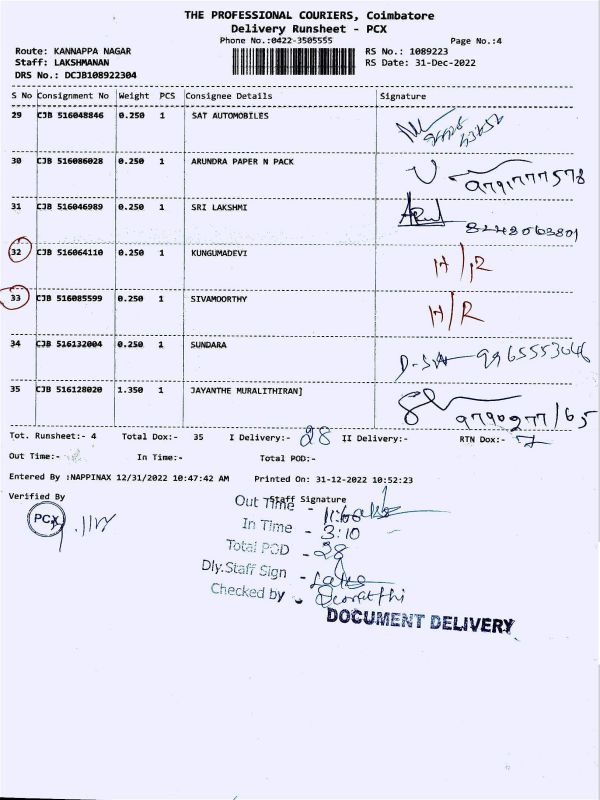 THE PROFESSIONAL COURIERS, Coimbatore
Delivery Runsheet - PCX
Phone No.:0422-3505555
Page No.:4
Route: KANNAPPA NAGAR
RS No.: 1089223
Staff: LAKSHMANAN
RS Date: 31-Dec-2022
DRS No.: DCJB108922304
S No Consignment No Weight PCS Consignee Details Signature
29 CJB 516048846 0.250 1 SAT AUTOMOBILES
30 CJB 516086028 0.250 1 ARUNDRA PAPER N PACK 9791777578
31 CJB 516046989 0.250 1 SRI LAKSHMI 8248063801
32 CJB 516064110 0.250 1 KUNGUMADEVI H/R
33 CJB 516085599 0.250 1 SIVAMOORTHY H/R
34 CJB 516132004 0.250 1 SUNDARA
35 CJB 516128020 1.350 1 JAYANTHE MURALITHIRAN]
Tot. Runsheet:- 4 Total Dox:- 35 I Delivery:- 28 II Delivery:- RTN Dox:- 7
Out Time:- In Time:- Total POD:-
Entered By :NAPPINAX 12/31/2022 10:47:42 AM Printed On: 31-12-2022 10:52:23
Verified By Staff Signature
PCX
Out Time -
In Time - 3:10
Total POD - 28
Dly.Staff Sign -
Checked by -
DOCUMENT DELIVERY